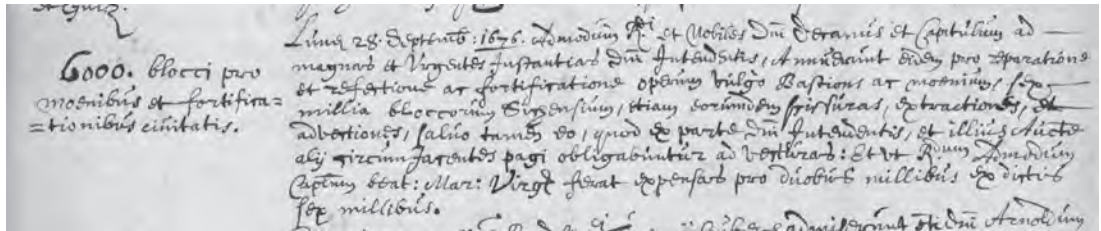 6000. blocci pro
moenibus et fortifica=
=tionibus civitatis.
Lunę 28. Septemb: 1676. Admodum R.di et Nobiles Dnī Decanus et Capitulum ad
magnas et Urgentes Instantias Dnī Intendentis, Annuerunt eidem pro reparatione
et refectione ac fortificatione operum vulgo Bastions ac moenium, sex
millia bloccorum Sigensium, etiam eorumdem scissuras, extractiones, et
advectiones, salvo tamen eo, quod ex parte Dnī Intendentis, et illius Aucte
alij circum Jacentes pagi obligabuntur ad vecturas: Et ut R.dum Admodum
Caplum beat: Mar: Virg: ferat expensas pro duobus millibus ex dictis
sex millibus.
admiserunt Dnī Arnoldum